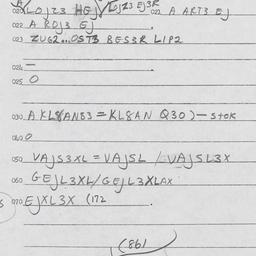 020 LOJZ3 HEJ LOJZ3 EJ3R 021 A ART3 EJ
022 A ROJ3 EJ
023 ZUG2...OST3 BES3R LIP2
024 —
025 O
030 A KL8AN83 = KL8AN Q30) - STOK
040 O
050 VAJS3XL = VAJSL / VAJSL3X
060 GEJL3XL/GEJL3XLAX
070 EJXL3X (172
(86)